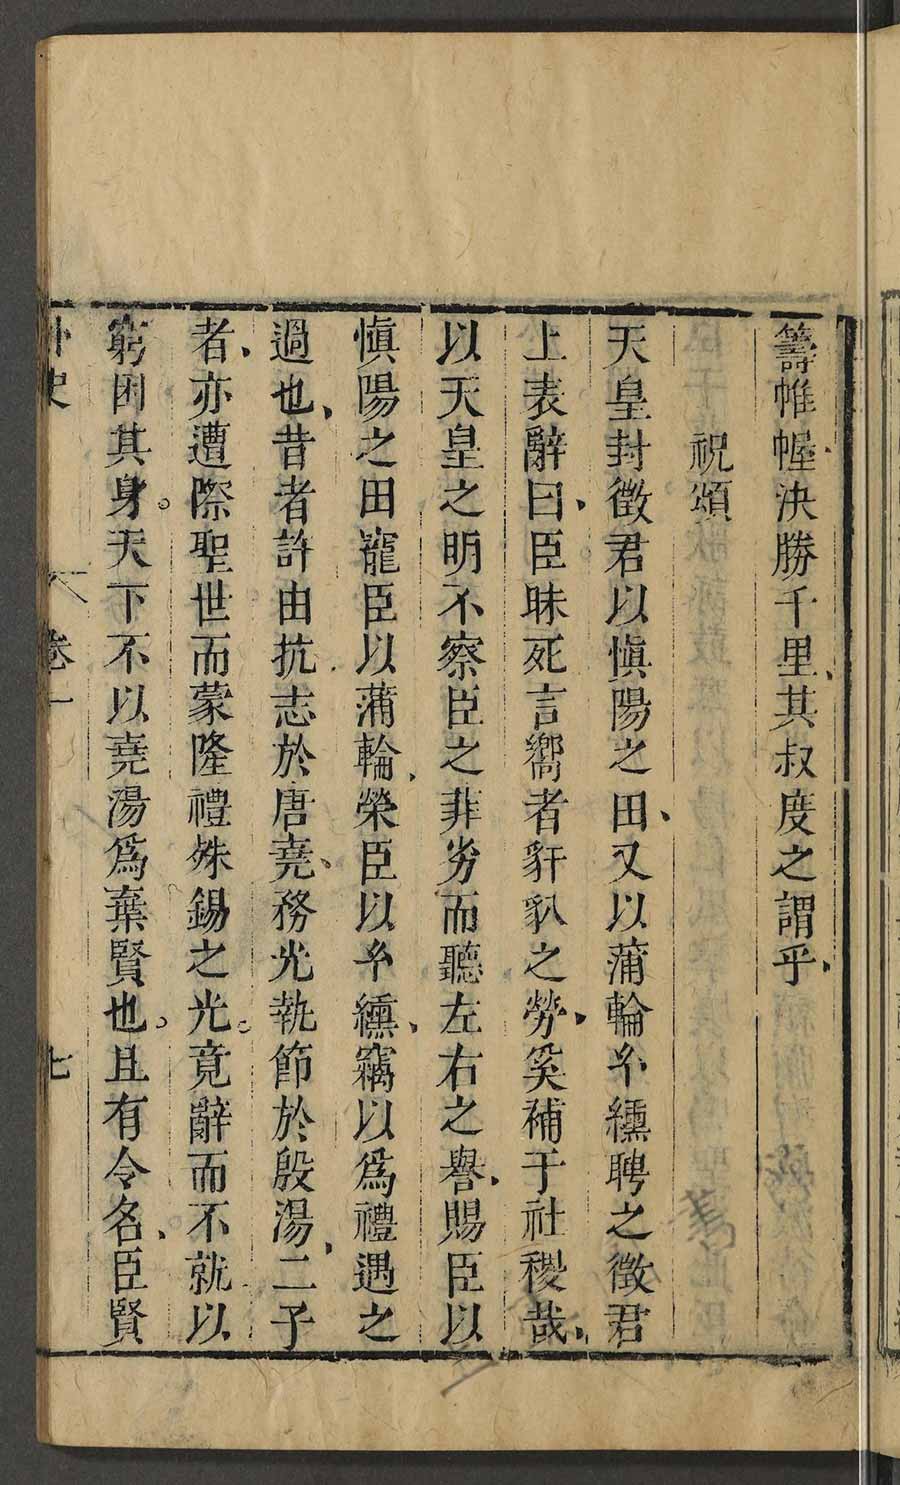 籌帷幄決勝千里其叔度之謂乎
祝頌
天皇封徵君以愼陽之田又以蒲輪糸纁聘之徵君
上表辭曰臣昧死言嚮者豻䝘之勞奚補于社稷哉
以天皇之明不察臣之菲劣而聽左右之譽賜臣以
愼陽之田寵臣以蒲輪榮臣以糸纁竊以爲禮遇之
過也昔者許由抗志於唐堯務光執節於殷湯二子
者亦遭際聖世而蒙隆禮殊錫之光竟辭而不就以
窮困其身天下不以堯湯爲棄賢也且有令名臣賢
外史 卷一 七